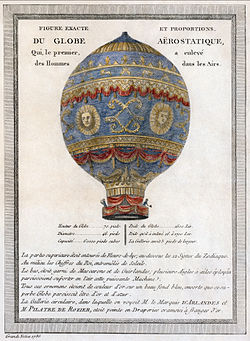 FIGURE EXACTE ET PROPORTIONS.
DU GLOBE AËROSTATIQUE,
Qui, le premier, a enlevé
des Hommes dans les Airs.
Hauteur du Globe 70 pieds
Diametre 46 pieds
Capacité 60000 pieds cubes
Poids du Globe 1600 liv.
La Gallerie avoit 3 pieds de largeur
La partie supérieure étoit entourée de Fleurs-de-lys; au-dessous les 12 Signes du Zodiaque.
Au milieu les Chiffres du Roi, entremêlés de Soleils.
Le bas, étoit garni de Mascarons et de Guirlandes, plusieurs Aigles à ailes éployées
paroissoient enfler en l'air cette puissante Machine.
Tous ces ornemens étoient de couleur d'or sur un beau fond bleu, ensorte que ce su-
perbe Globe paroissoit être d'or et d'azur.
La Gallerie circulaire, dans laquelle on voyoit M. le Marquis D'ARLANDES et
M. PILATRE DE ROZIER, étoit peinte en Draperies cramoisi à franges d'or